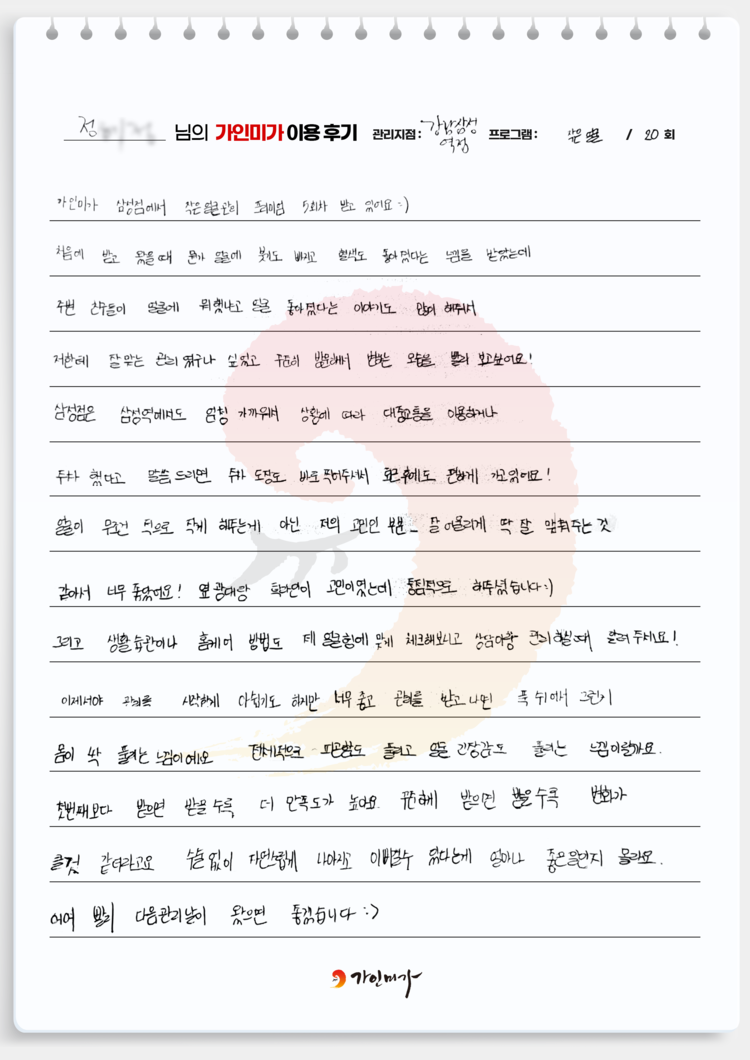 정 님의 가인미가 이용 후기 관리지점 : 강남삼성역점 프로그램 : 작은 얼굴 / 20 회
가인미가 삼성점에서 작은얼굴관리 프리미엄 5회차 받고 있어요 :)
처음에 받고 왔을때 뭔가 얼굴에 붓기도 빠지고 혈색도 좋아졌다는 느낌을 받았는데
주변 친구들이 얼굴에 뭐했냐고 얼굴 좋아졌다는 이야기도 많이 해줘서
저한테 잘맞는 관리 였구나 싶었고 꾸준히 받아서 변하는 모습을 빨리 보고싶어요!
삼성점은 삼성역에서도 엄청 가까워서 상황에 따라 대중교통을 이용하거나
주차 했다고 말씀 드리면 주차 도장도 바로 찍어주셔서 편하게 가고있어요!
얼굴이 무조건 작게 해주는게 아닌 저의 고민인 부분 잘 어울리게 딱 잘 맞춰주는 것
같아서 너무 좋았어요! 옆광대랑 고민이였는데 집중적으로 해주셨습니다 :)
그리고 생활습관이나 홈케어 방법도 제 얼굴형에 맞게 체크해보시고 상담이랑 관리할때 알려주세요!
이제서야 관리를 시작한게 아쉽기도 하지만 너무 좋고 관리를 받고나면 푹 쉬어서 그런지
몸이 싹 풀리는 느낌이에요 전체적으로 피곤함도 풀리고 얼굴 긴장감도 풀리는 느낌이랄까요.
첫번째보다 받으면 받을수록 더 만족도가 높아요. 꾸준하게 받으면 받을수록 변화가
클것 같더라고요 수술없이 자연스럽게 나아지고 이뻐질수 있다는게 얼마나 좋은일인지 몰라요.
어여 빨리 다음관리날이 왔으면 좋겠습니다 :>
가인미가